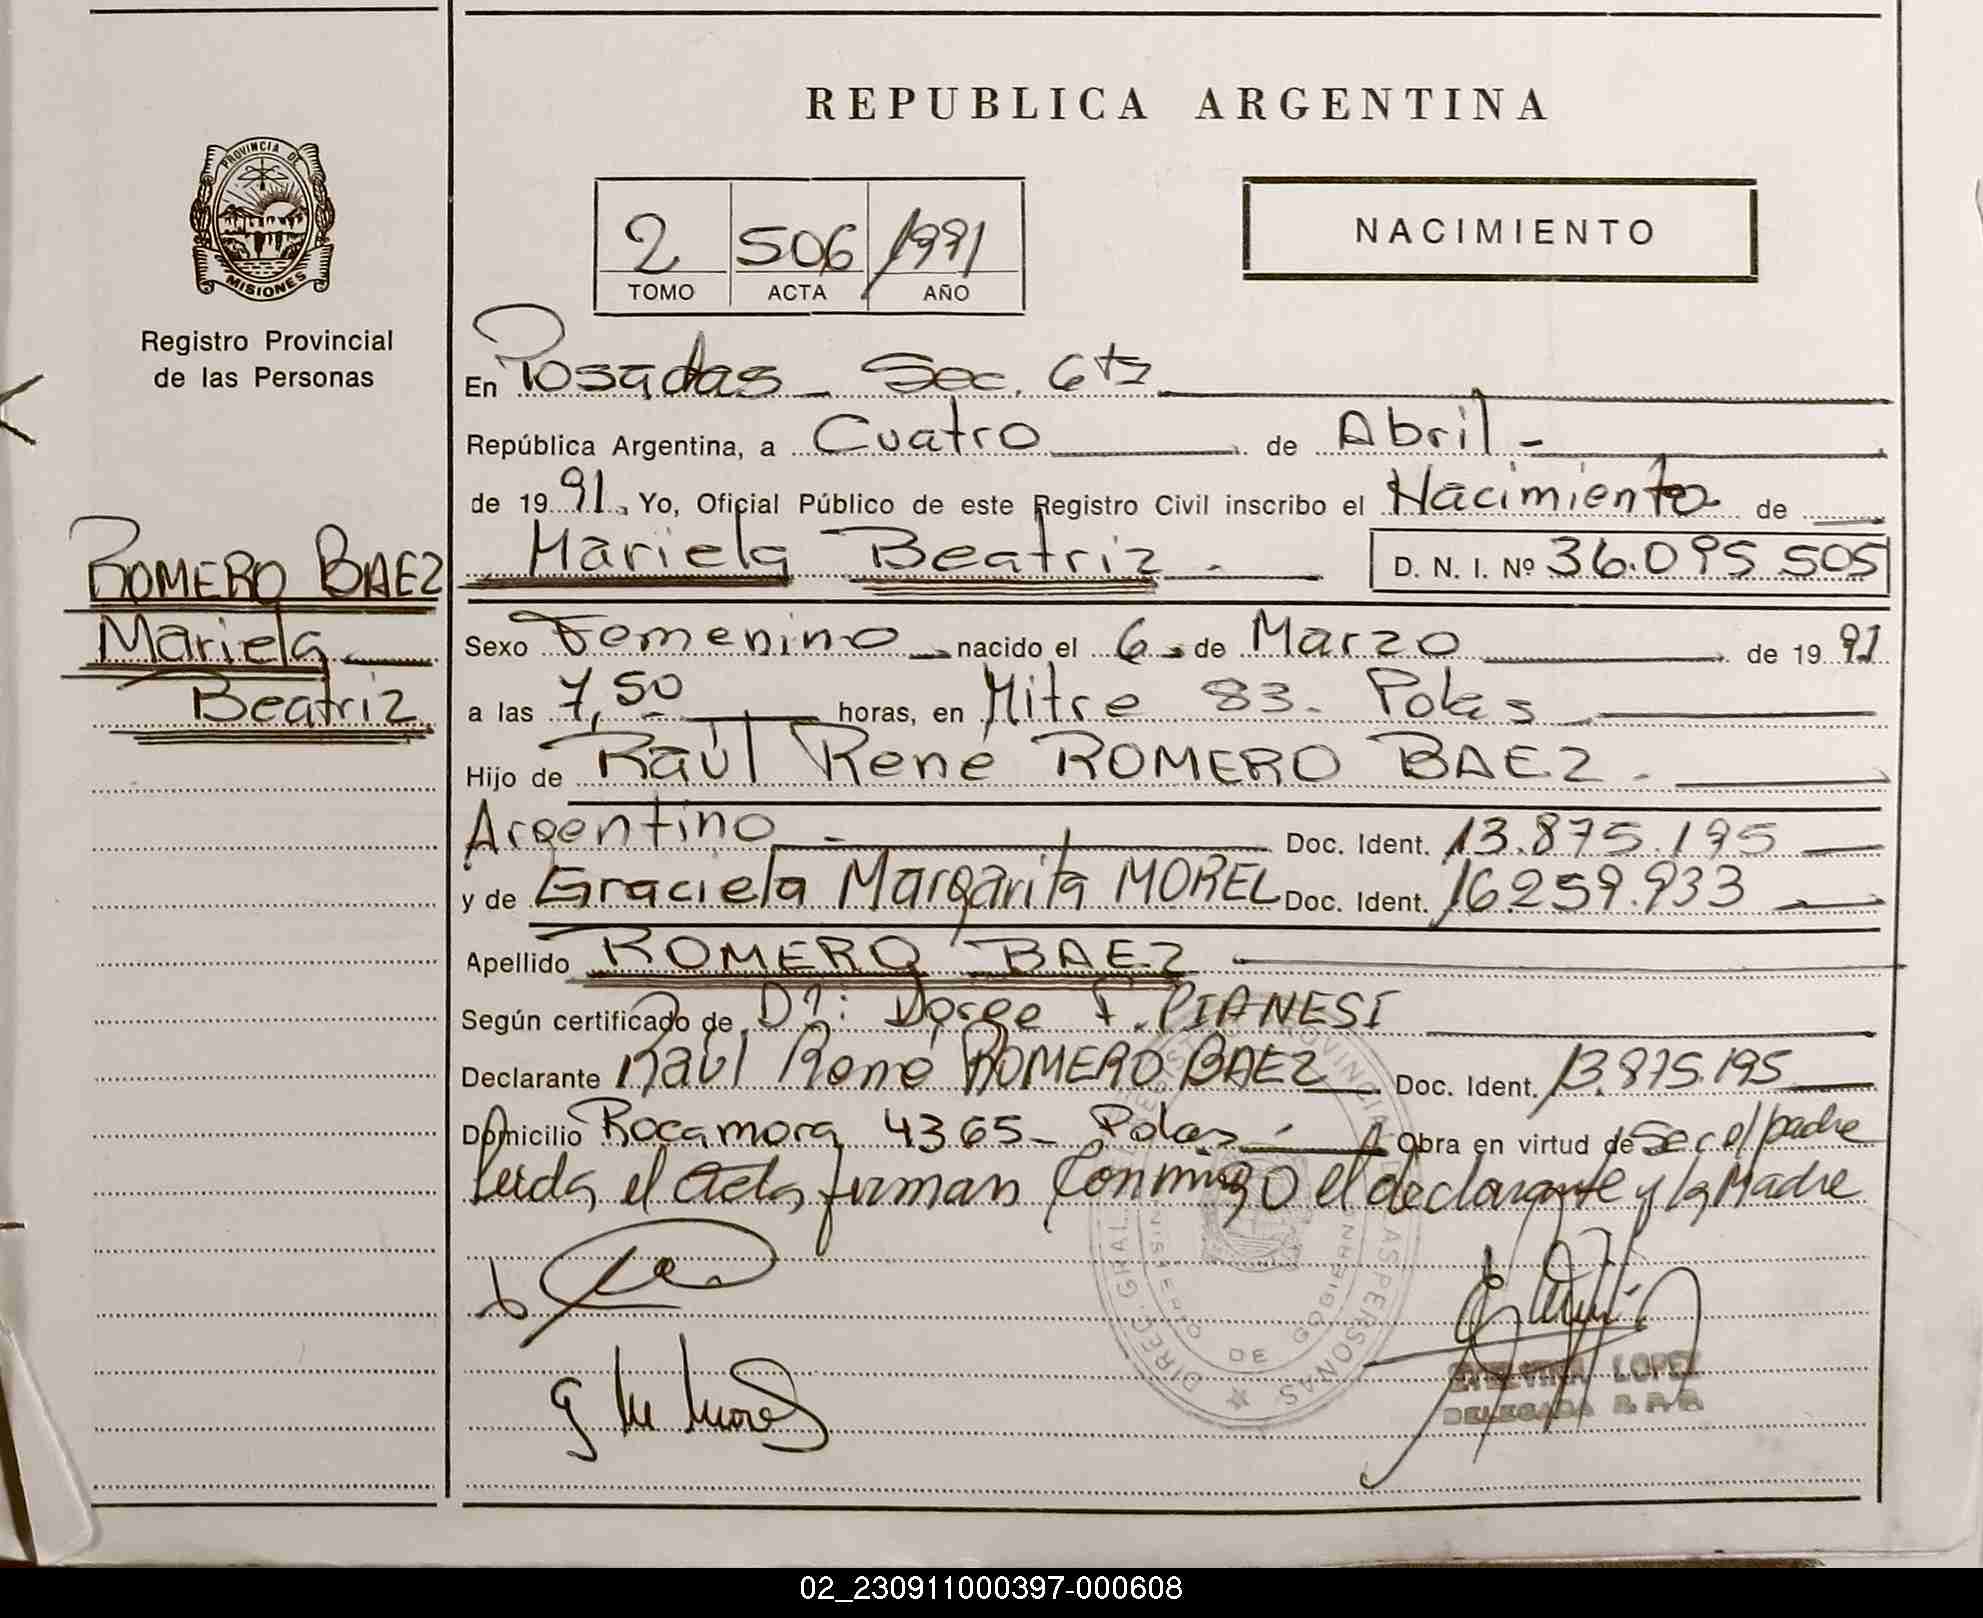 REPUBLICA ARGENTINA
PROVINCIA DE
MISIONES
Registro Provincial
de las Personas
2 506 1991
TOMO ACTA AÑO
NACIMIENTO
En Posadas - Sec. 6ta
República Argentina, a Cuatro de Abril -
de 1991, Yo, Oficial Público de este Registro Civil inscribo el Nacimiento de
Mariela Beatriz - D. N. I. Nº 36.095 505
ROMERO BAEZ
Mariela
Beatriz
Sexo Femenino nacido el 6 de Marzo de 1991
a las 7,50 horas, en Mitre 83. Pdas
Hijo de Raúl René ROMERO BAEZ -
Argentino - Doc. Ident. 13.875.195
y de Graciela Margarita MOREL Doc. Ident. 16259.933
Apellido ROMERO BAEZ
Según certificado de Dr: Jorge F. PIANESI
Declarante Raúl René ROMERO BAEZ Doc. Ident. 13.875.195
Domicilio Rocamora 4365 - Pdas - Obra en virtud de Ser el padre
Leida el Acta, firman Conmigo el declarante y la Madre
DIREC. GRAL. PROVINCIAL LAS PERSONAS
MINISTERIO DE GOBIERNO
LOPEZ
DELEGADA R.P.P.
02_230911000397-000608